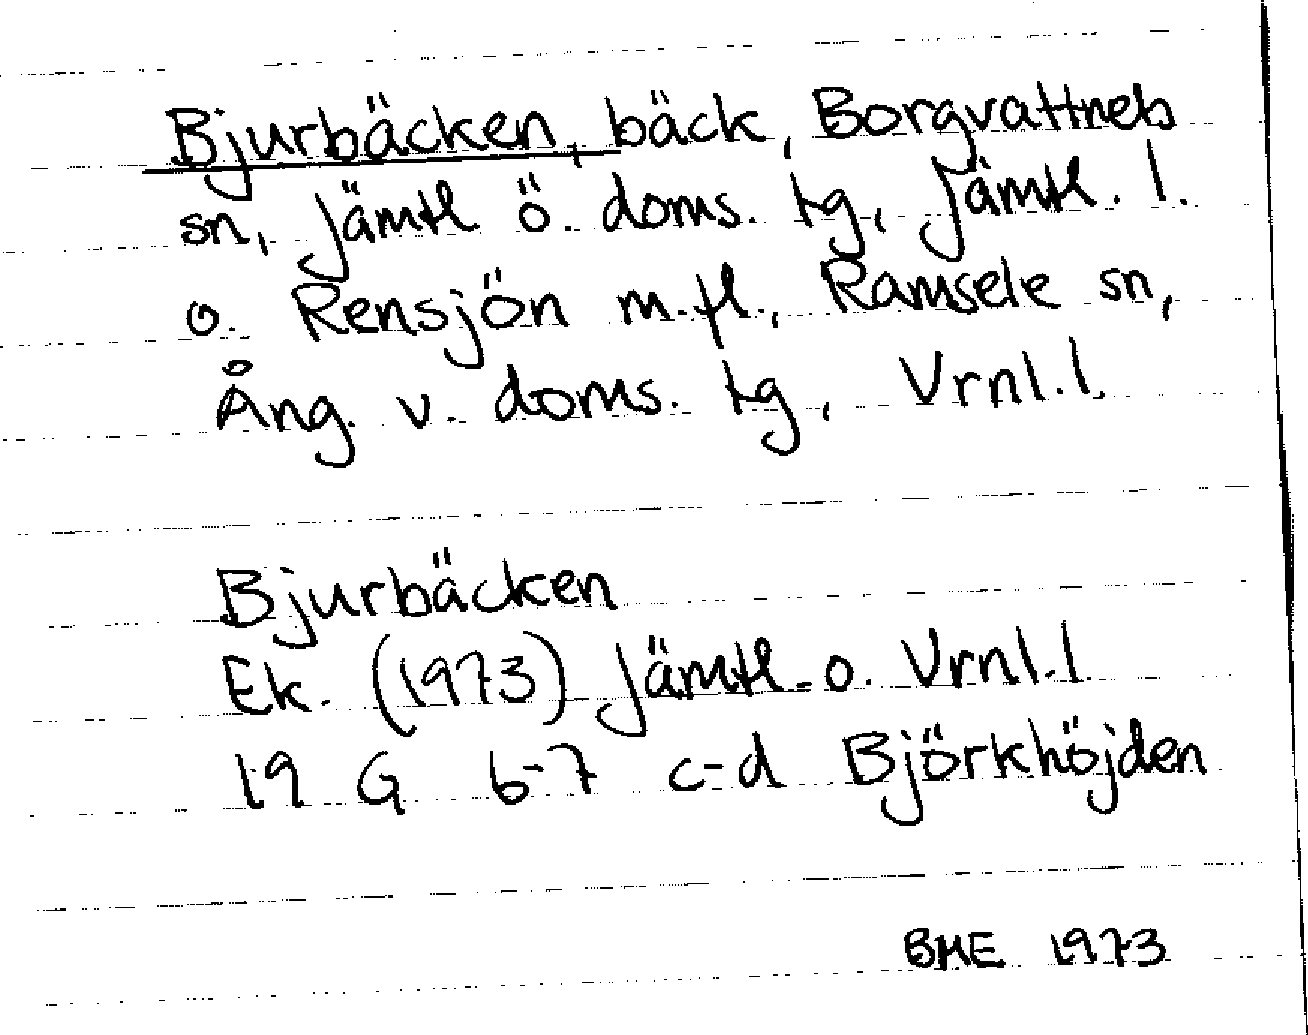 Bjurbäcken, bäck, Borgvattnets
sn, Jämtl ö. doms. tg, Jämtl. l.
o. Rensjön m.fl., Ramsele sn,
Ång. v. doms. tg, Vrnl.l.
Bjurbäcken
Ek. (1973) Jämtl. o. Vrnl.l
19 G 6-7 c-d Björkhöjden
BME 1973